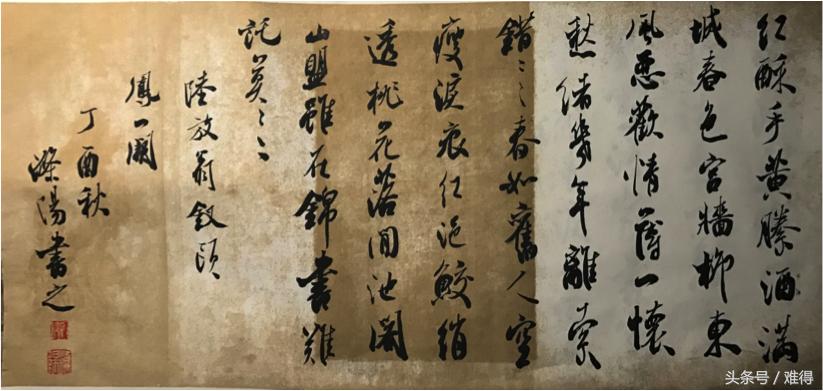 红酥手黄縢酒满
城春色宫牆柳東
風惡歡情薄一懷
愁緒幾年離索
錯々々春如舊人空
瘦淚痕红浥鮫綃
透桃花落閒池閣
山盟雖在錦書難
託莫々々
陸放翁釵頭
鳳一闋
丁酉秋
書之
头条号 / 难得